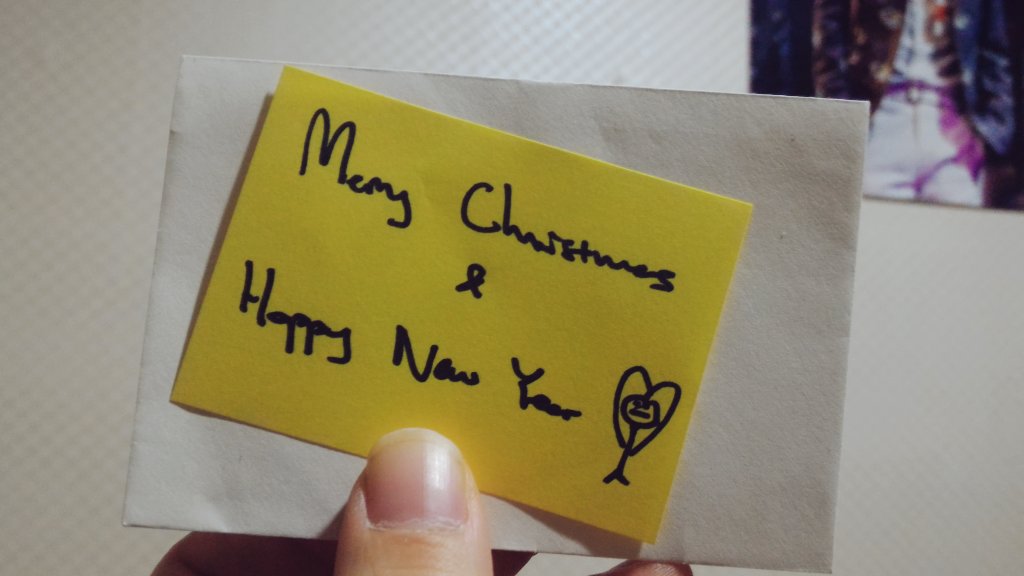 Merry Christmas
&
Happy New Year